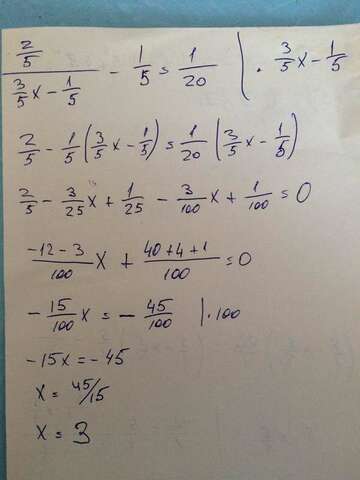 (2/5)/(3/5x - 1/5) - 1/5 = 1/20 | · 3/5x - 1/5
2/5 - 1/5(3/5x - 1/5) = 1/20(3/5x - 1/5)
2/5 - 3/25x + 1/25 - 3/100x + 1/100 = 0
(-12-3)/100 x + (40+4+1)/100 = 0
-15/100x = -45/100 | · 100
-15x = -45
x = 45/15
x = 3